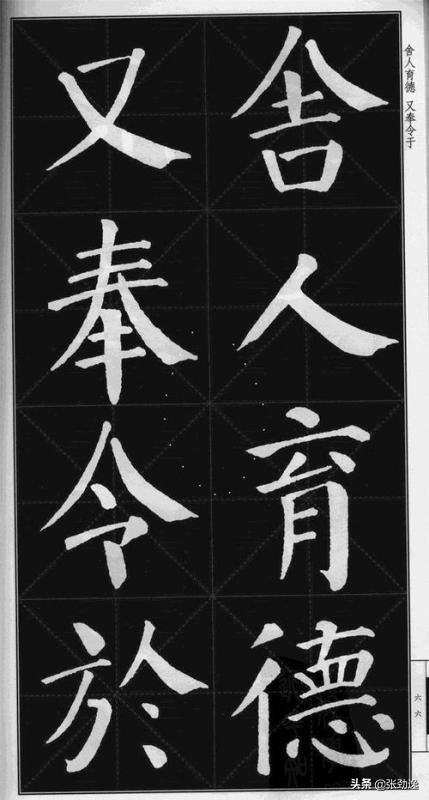 舍人育德
又奉令於
舍人育德 又奉令于
六六
头条@张劲逸